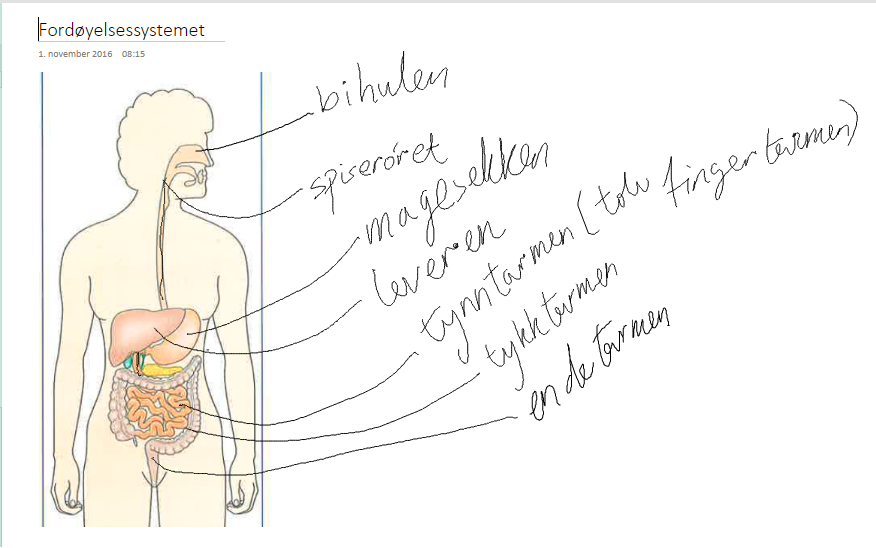 Fordøyelsessystemet
1. november 2016 08:15
bihulen
spiserøret
magesekken
leveren
tynntarmen (tolv fingertarmen)
tykktarmen
endetarmen